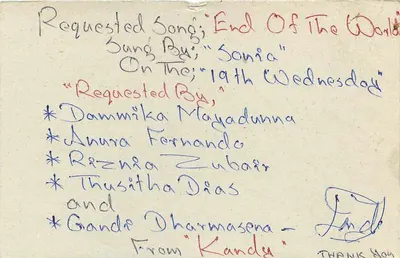 Requested Song; "End Of The World"
Sung By; "Sonia"
On The; "19th Wednesday"
"Requested By,"
* Dammika Mayadunna
* Anura Fernando
* Riznia Zubair
* Thusitha Dias
and
* Gandi Dharmasena -
From "Kandy"
THANK You